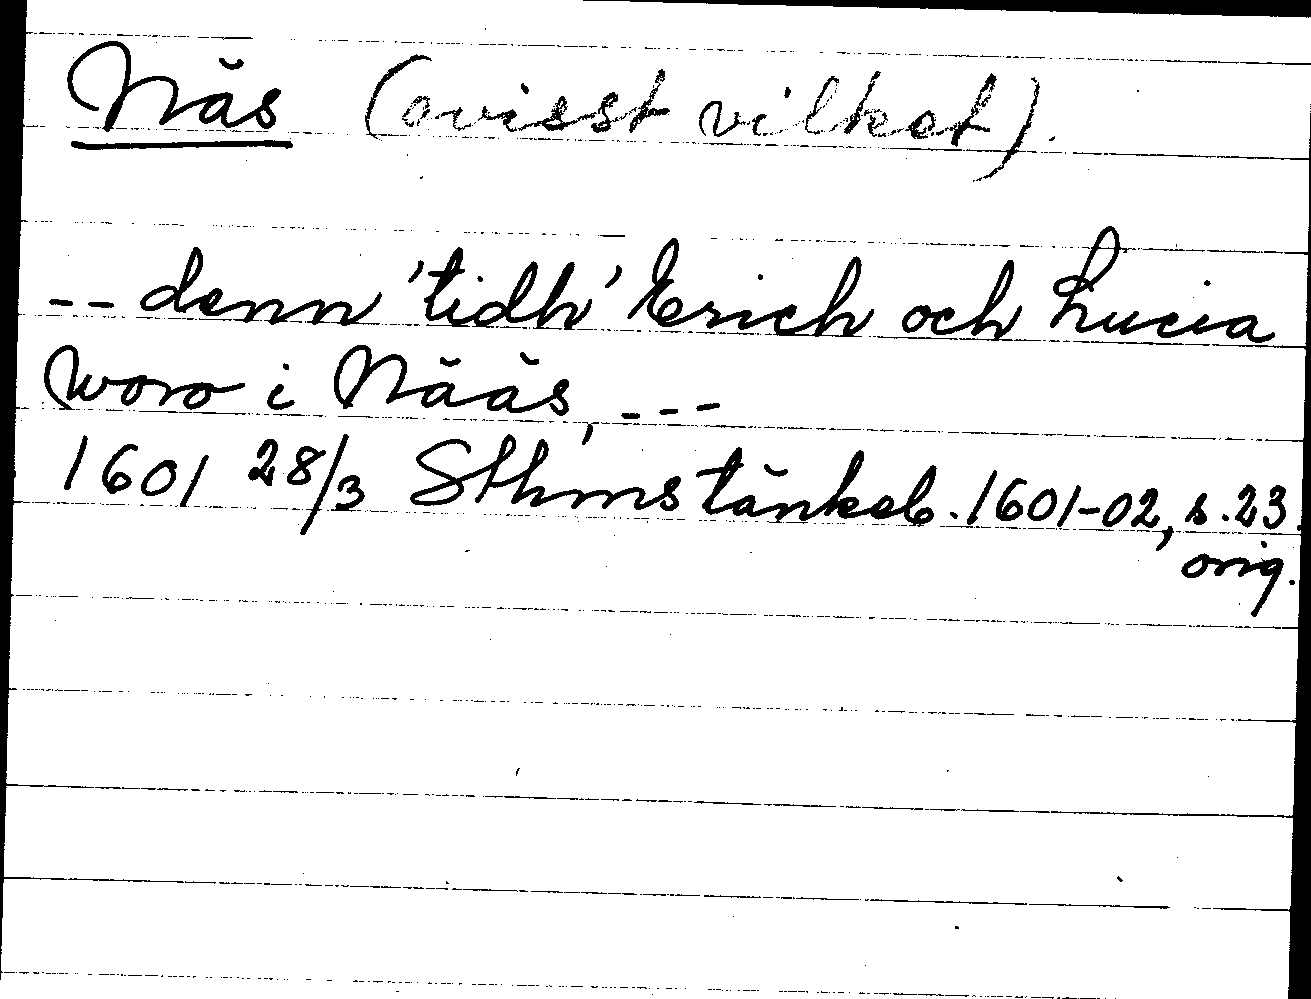 Näs (ovisst vilket).
-- denn 'tidh' Erich och Lucia
woro i Nääs, ---
1601 28/3 Sthms tänkeb. 1601-02, s. 23.
orig.